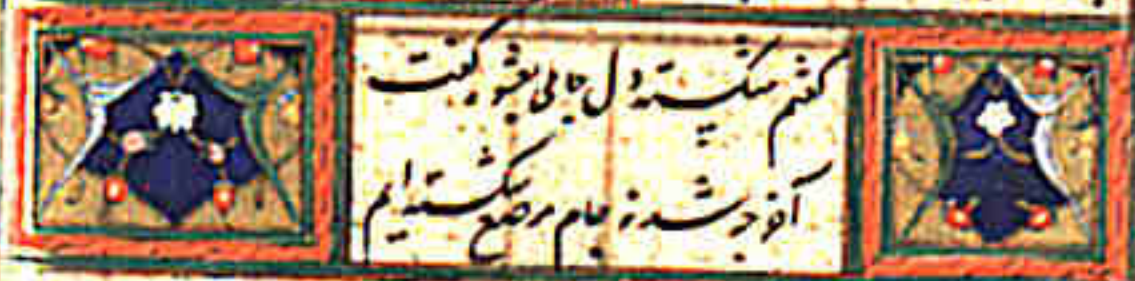 کفتم شکسته دل جامی بعشوه کفت
آخر چه شد نه جام مرصع شکسته ایم